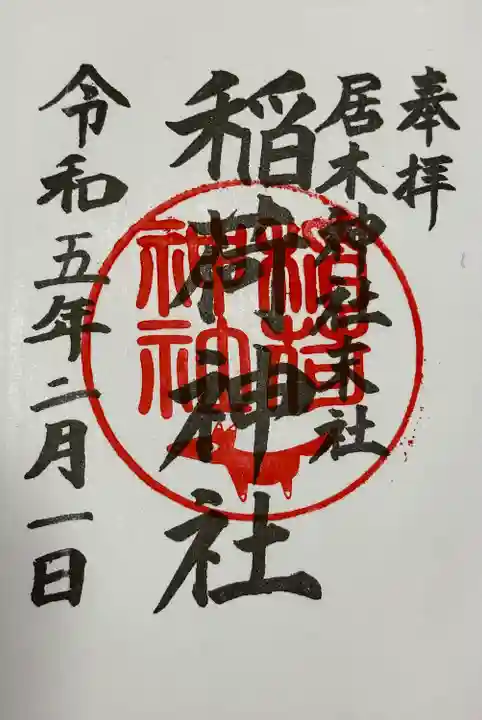 奉拝
居木神社末社
稲荷神社
令和五年二月一日